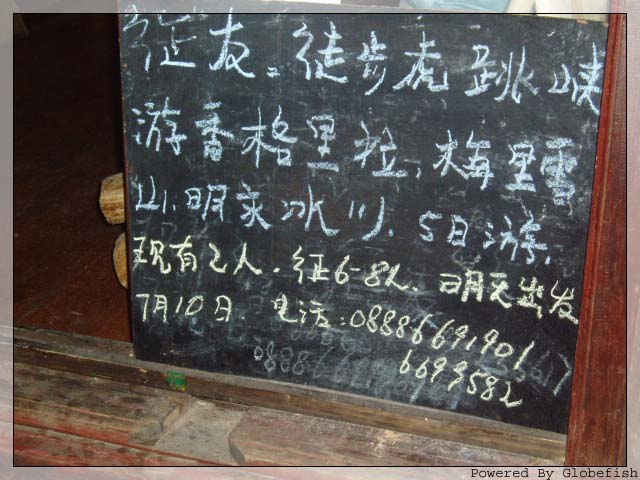 征友：徒步虎跳峡
游香格里拉、梅里雪
山、明永冰川、5日游、
现有2人、征6-8人、明天出发
7月10日、电话：08886691901
6699582
Powered By Globefish